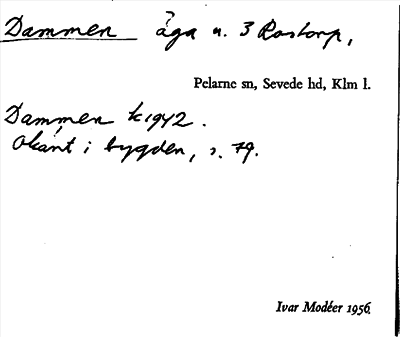 Dammen äga n. 3 Rostorp,
Pelarne sn, Sevede hd, Klm l.
Dammen k 1942.
Okänt i bygden, s. 79.
Ivar Modéer 1956.